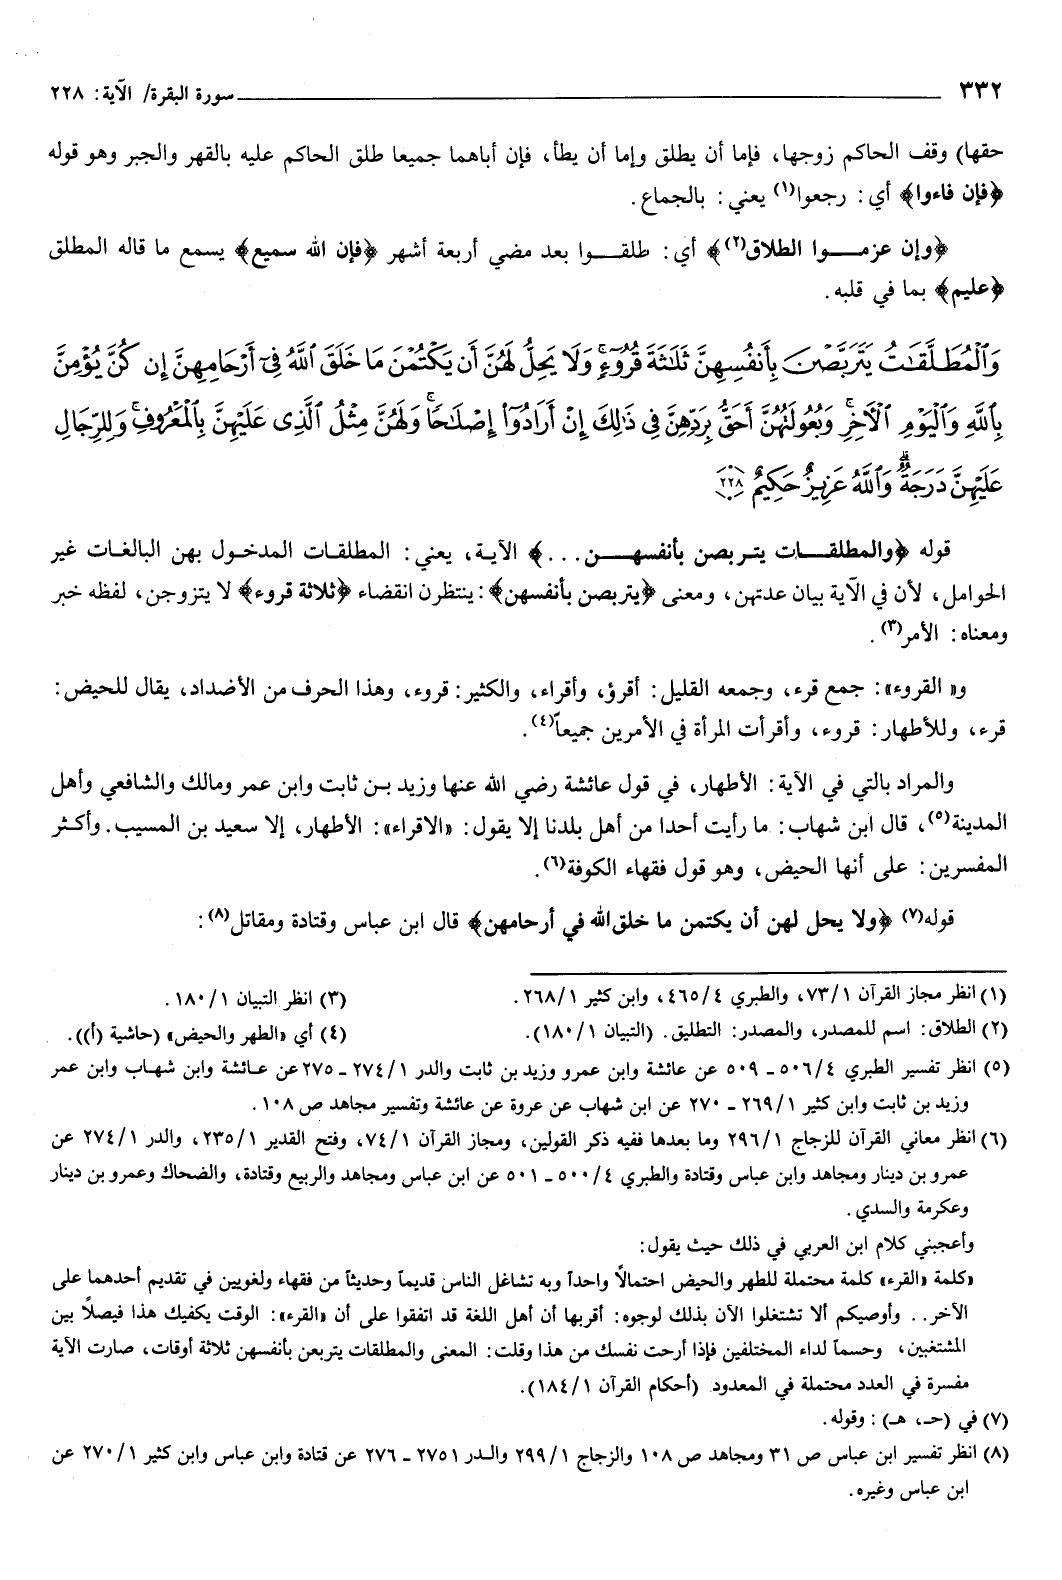 ٣٣٢ سورة البقرة/ الآية: ٢٢٨
حقها) وقف الحاكم زوجها، فإما أن يطلق وإما أن يطأ، فإن أباهما جميعا طلق الحاكم عليه بالقهر والجبر وهو قوله
﴿فإن فاءوا﴾ أي: رجعوا(١) يعني: بالجماع.
﴿وإن عزموا الطلاق(٢)﴾ أي: طلقوا بعد مضي أربعة أشهر ﴿فإن الله سميع﴾ يسمع ما قاله المطلق
﴿عليم﴾ بما في قلبه.
وَٱلْمُطَلَّقَٰتُ يَتَرَبَّصْنَ بِأَنفُسِهِنَّ ثَلَٰثَةَ قُرُوٓءٍ ۚ وَلَا يَحِلُّ لَهُنَّ أَن يَكْتُمْنَ مَا خَلَقَ ٱللَّهُ فِىٓ أَرْحَامِهِنَّ إِن كُنَّ يُؤْمِنَّ
بِٱللَّهِ وَٱلْيَوْمِ ٱلْءَاخِرِ ۚ وَبُعُولَتُهُنَّ أَحَقُّ بِرَدِّهِنَّ فِى ذَٰلِكَ إِنْ أَرَادُوٓا۟ إِصْلَٰحًا ۚ وَلَهُنَّ مِثْلُ ٱلَّذِى عَلَيْهِنَّ بِٱلْمَعْرُوفِ ۚ وَلِلرِّجَالِ
عَلَيْهِنَّ دَرَجَةٌ ۗ وَٱللَّهُ عَزِيزٌ حَكِيمٌ ٢٢٨
قوله ﴿والمطلقات يتربصن بأنفسهن...﴾ الآية، يعني: المطلقات المدخول بهن البالغات غير
الحوامل، لأن في الآية بيان عدتهن، ومعنى ﴿يتربصن بأنفسهن﴾: ينتظرن انقضاء ﴿ثلاثة قروء﴾ لا يتزوجن، لفظه خبر
ومعناه: الأمر(٣).
و«القروء»: جمع قرء، وجمعه القليل: أقرؤ، وأقراء، والكثير: قروء، وهذا الحرف من الأضداد، يقال للحيض:
قرء، وللأطهار: قروء، وأقرأت المرأة في الأمرين جميعاً(٤).
والمراد بالتي في الآية: الأطهار، في قول عائشة رضي الله عنها وزيد بن ثابت وابن عمر ومالك والشافعي وأهل
المدينة(٥)، قال ابن شهاب: ما رأيت أحدا من أهل بلدنا إلا يقول: «الاقراء»: الأطهار، إلا سعيد بن المسيب. وأكثر
المفسرين: على أنها الحيض، وهو قول فقهاء الكوفة(٦).
قوله(٧) ﴿ولا يحل لهن أن يكتمن ما خلق الله في أرحامهن﴾ قال ابن عباس وقتادة ومقاتل(٨):
(١) انظر مجاز القرآن ٧٣/١، والطبري ٤٦٥/٤، وابن كثير ٢٦٨/١. (٣) انظر التبيان ١٨٠/١.
(٢) الطلاق: اسم للمصدر، والمصدر: التطليق. (التبيان ١٨٠/١). (٤) أي «الطهر والحيض» (حاشية (أ)).
(٥) انظر تفسير الطبري ٥٠٦/٤ ـ ٥٠٩ عن عائشة وابن عمرو وزيد بن ثابت والدر ٢٧٤/١ ـ ٢٧٥ عن عائشة وابن شهاب وابن عمر
وزيد بن ثابت وابن كثير ٢٦٩/١ ـ ٢٧٠ عن ابن شهاب عن عروة عن عائشة وتفسير مجاهد ص ١٠٨.
(٦) انظر معاني القرآن للزجاج ٢٩٦/١ وما بعدها ففيه ذكر القولين، ومجاز القرآن ٧٤/١، وفتح القدير ٢٣٥/١، والدر ٢٧٤/١ عن
عمرو بن دينار ومجاهد وابن عباس وقتادة والطبري ٥٠٠/٤ ـ ٥٠١ عن ابن عباس ومجاهد والربيع وقتادة، والضحاك وعمرو بن دينار
وعكرمة والسدي.
وأعجبني كلام ابن العربي في ذلك حيث يقول:
«كلمة «القرء» كلمة محتملة للطهر والحيض احتمالاً واحداً وبه تشاغل الناس قديماً وحديثاً من فقهاء ولغويين في تقديم أحدهما على
الآخر.. وأوصيكم ألا تشتغلوا الآن بذلك لوجوه: أقربها أن أهل اللغة قد اتفقوا على أن «القرء»: الوقت يكفيك هذا فيصلاً بين
المشتغبين، وحسماً لداء المختلفين فإذا أرحت نفسك من هذا وقلت: المعنى والمطلقات يتربعن بأنفسهن ثلاثة أوقات، صارت الآية
مفسرة في العدد محتملة في المعدود (أحكام القرآن ١٨٤/١).
(٧) في (حـ، هـ) : وقوله.
(٨) انظر تفسير ابن عباس ص ٣١ ومجاهد ص ١٠٨ والزجاج ٢٩٩/١ والدر ٢٧٥١ ـ ٢٧٦ عن قتادة وابن عباس وابن كثير ٢٧٠/١ عن
ابن عباس وغيره.